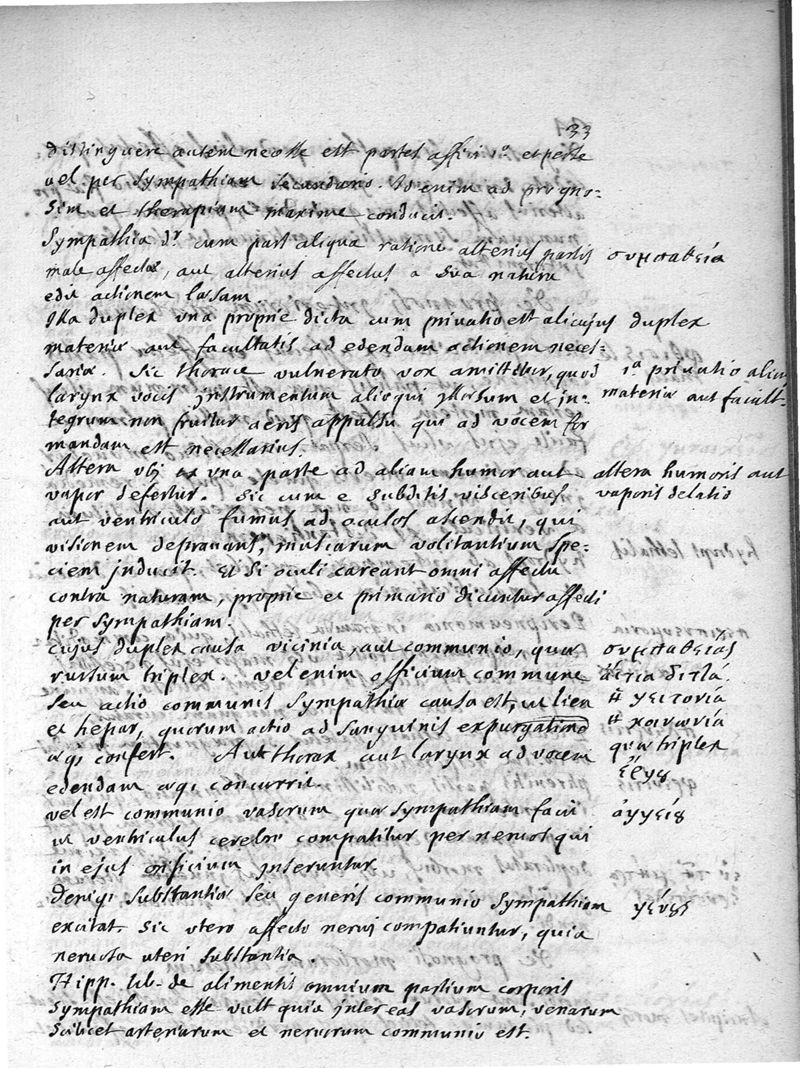 33
distinguere autem necesse est partes affici 1o et per se
vel per sympathiam secundario. Id enim ad progno-
sim et therapiam maxime conducit.
Sympathia dr cum pars aliqua ratione alterius partis
male affectæ, aut alterius affectus a sua natura
edit actionem læsam.
συμπαθεία
Illa duplex una proprie dicta cum privatio est alicujus
materiæ aut facultatis ad edendam actionem neces-
sariæ. Sic thorace vulnerato vox amittitur, quod
larynx vocis instrumentum alioqui illæsum et in-
tegrum non fruitur aeris appulsu qui ad vocem for
mandam est necessarius.
duplex
1a privatio alicu
materiæ aut facult-
Altera ubi ex una parte ad aliam humor aut
vapor defertur. Sic cum e subditis visceribus
aut ventriculo fumus ad oculos ascendit, qui
visionem depravans, muscarum volitantium spe-
ciem inducit. Et si oculi careant omni affectu
contra naturam, proprie et primario dicuntur affecti
per sympathiam.
altera humoris aut
vaporis delatio
cujus duplex causa vicinia, aut communio, quæ
rursum triplex. vel enim officium commune
seu actio communis sympathiæ causa est, ut lien
et hepar, quorum actio ad sanguinis expurgationē
æq; confert. Aut thorax aut larynx ad vocem
edendam æq; concurrit.
συμπαθείας
ἀιτία διτλά.
ἢ γειτονία
ἢ κοινωνία
quæ triplex
ἔργȣ
vel est communio vasorum quæ sympathiam facit
ut ventriculus cerebro compatitur per nervos qui
in ejus orificium inseruntur.
ἀγγείȣ
Deniq; substantiæ seu generis communio sympathiam
excitat. Sic utero affecto nervi compatiuntur, quia
nervosa uteri substantia.
γένȣς
Hipp. lib. de alimentis omnium partium corporis
sympathiam esse vult quia inter eas vasorum, venarum
scilicet arteriarum et nervorum communio est.